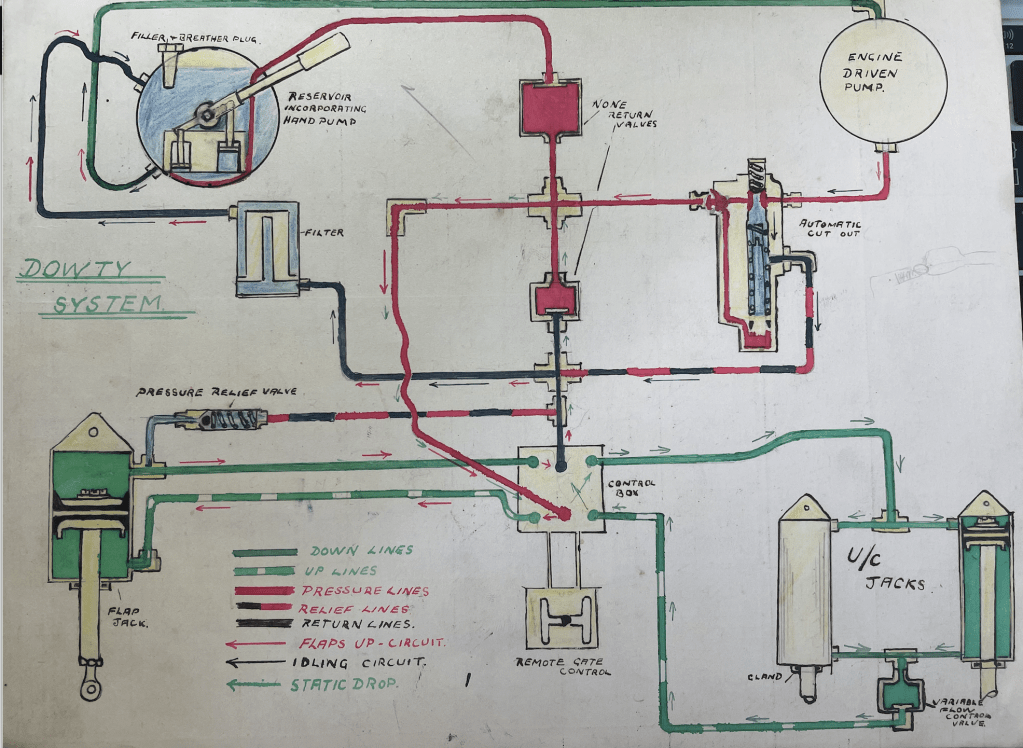 FILLER & BREATHER PLUG.
ENGINE
DRIVEN
PUMP.
RESERVOIR
INCORPORATING
HAND PUMP
NONE
RETURN
VALVES
FILTER
AUTOMATIC
CUT OUT
DOWTY
SYSTEM.
PRESSURE RELIEF VALVE
CONTROL
BOX
U/C
JACKS.
DOWN LINES
UP LINES
PRESSURE LINES
RELIEF LINES
RETURN LINES.
FLAPS UP-CIRCUIT.
IDLING CIRCUIT.
STATIC DROP.
FLAP
JACK.
REMOTE GATE
CONTROL
GLAND
VARIABLE
FLOW
CONTROL
VALVE.